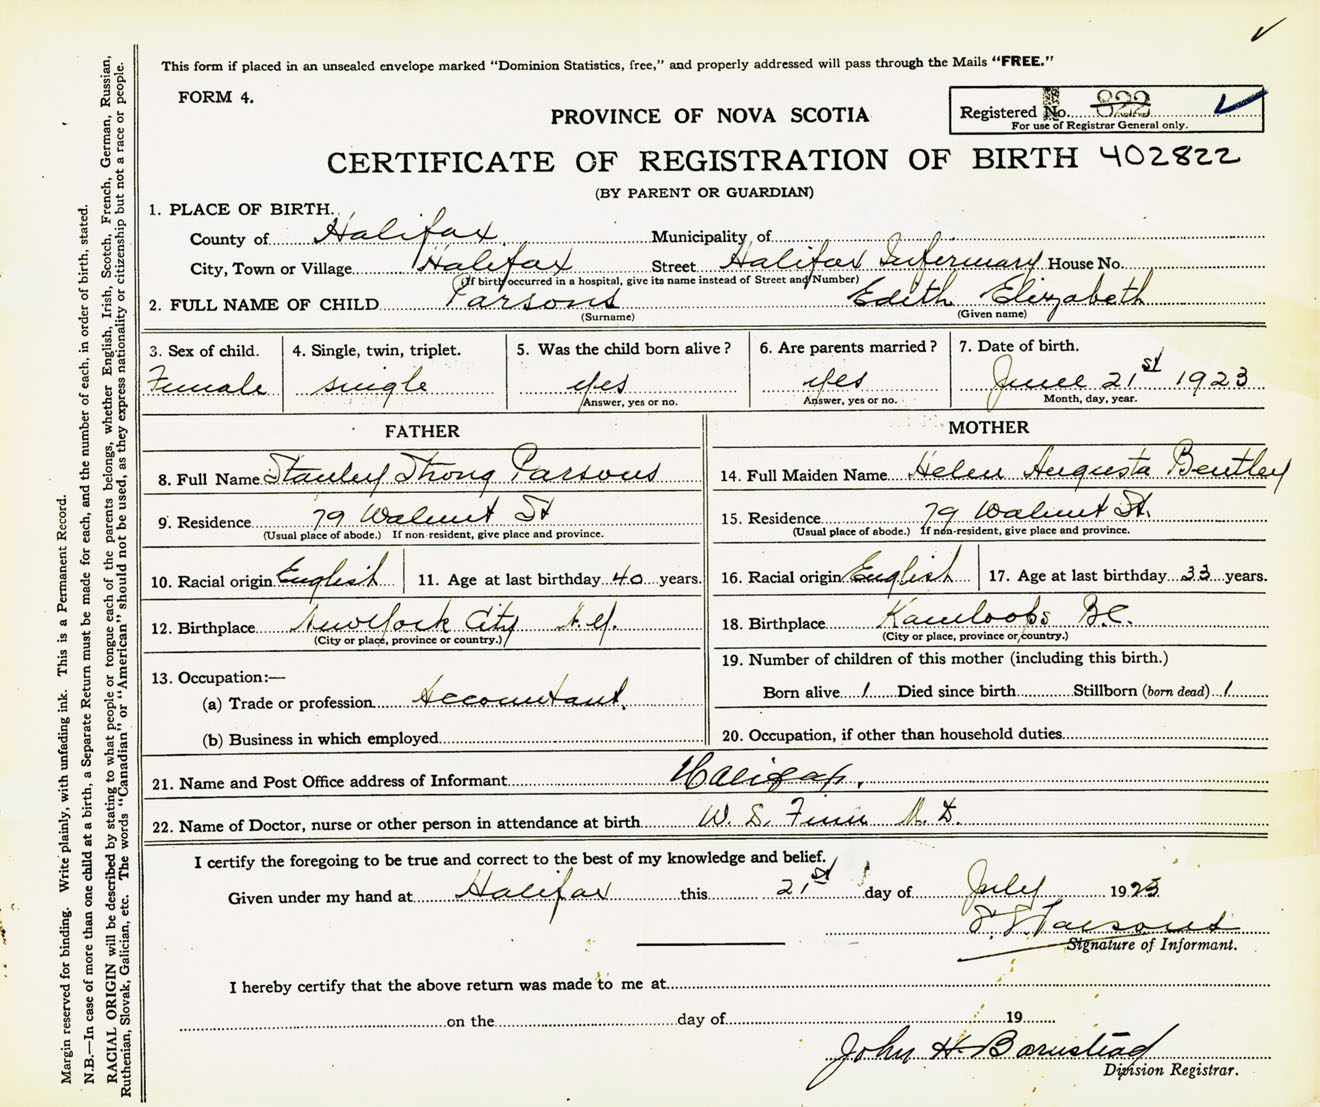 This form if placed in an unsealed envelope marked "Dominion Statistics, free," and properly addressed will pass through the Mails "FREE."
FORM 4.
Registered No. 822
For use of Registrar General only.
PROVINCE OF NOVA SCOTIA
CERTIFICATE OF REGISTRATION OF BIRTH 402822
(BY PARENT OR GUARDIAN)
1. PLACE OF BIRTH.
County of Halifax Municipality of
City, Town or Village Halifax Street Halifax Infirmary House No.
(If birth occurred in a hospital, give its name instead of Street and Number)
2. FULL NAME OF CHILD Parsons Edith Elizabeth
(Surname) (Given name)
3. Sex of child. 4. Single, twin, triplet. 5. Was the child born alive? 6. Are parents married? 7. Date of birth.
Female single yes yes June 21st 1923
Answer, yes or no. Answer, yes or no. Month, day, year.
FATHER
8. Full Name Stanley Strong Parsons
9. Residence 79 Walnut St
(Usual place of abode.) If non-resident, give place and province.
10. Racial origin English 11. Age at last birthday 40 years.
12. Birthplace New York City N.Y.
(City or place, province or country.)
13. Occupation:—
(a) Trade or profession Accountant.
(b) Business in which employed
MOTHER
14. Full Maiden Name Helen Augusta Bentley
15. Residence 79 Walnut St.
(Usual place of abode.) If non-resident, give place and province.
16. Racial origin English 17. Age at last birthday 33 years.
18. Birthplace Kamloops B.C.
(City or place, province or country.)
19. Number of children of this mother (including this birth.)
Born alive 1 Died since birth Stillborn (born dead) 1
20. Occupation, if other than household duties
21. Name and Post Office address of Informant Halifax.
22. Name of Doctor, nurse or other person in attendance at birth W. D. Finn M.D.
I certify the foregoing to be true and correct to the best of my knowledge and belief.
Given under my hand at Halifax this 21st day of July 1923
S. S. Parsons
Signature of Informant.
I hereby certify that the above return was made to me at
on the day of 19
John H. Barnstead
Division Registrar.
Margin reserved for binding. Write plainly, with unfading ink. This is a Permanent Record.
N.B.—In case of more than one child at a birth, a Separate Return must be made for each, and the number of each, in order of birth, stated.
RACIAL ORIGIN will be described by stating to what people or tongue each of the parents belongs, whether English, Irish, Scotch, French, German, Russian,
Ruthenian, Slovak, Galician, etc. The words "Canadian" or "American" should not be used, as they express nationality or citizenship but not a race or people.